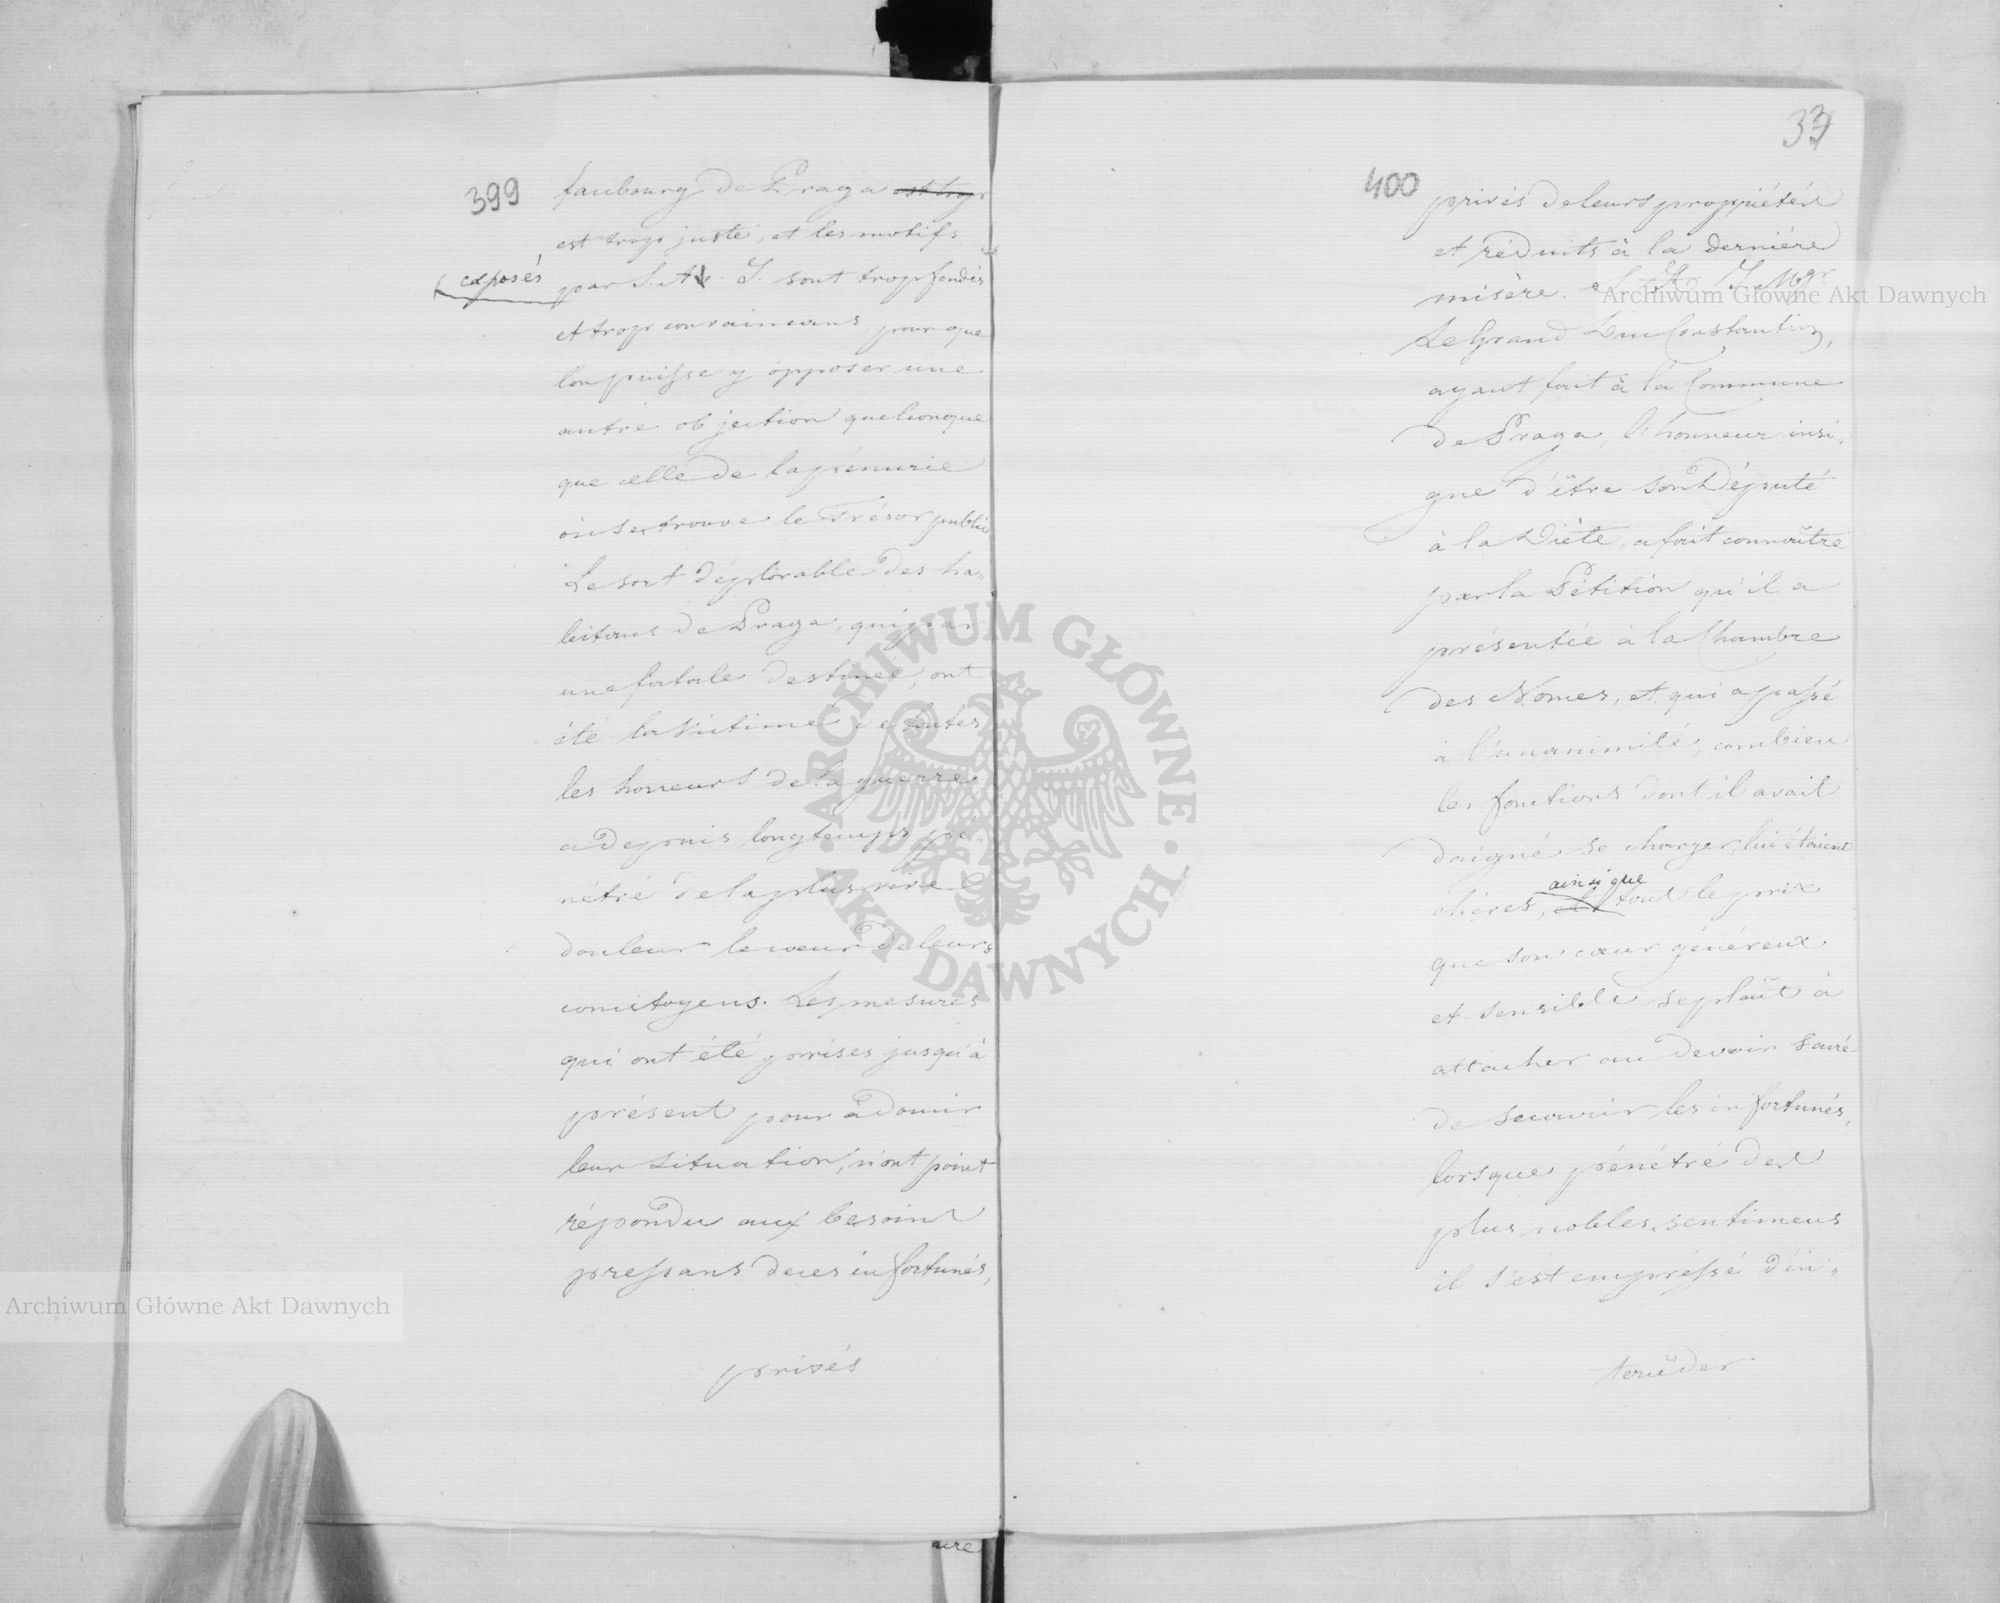 399
faubourg de Praga est trop
est trop juste, et les motifs
exposés
par S. A. I. sont trop fondés
et trop convaincans, pour que
l'on puisse y opposer une
autre objection quelconque
que celle de la pénurie
où se trouve le Trésor public
Le sort déplorable des ha-
bitans de Praga, qui par
une fatale destinée, ont
été la victime de toutes
les horreurs de la guerre
a depuis longtemps pé-
nétré de la plus vive
douleur le cœur de leurs
concitoyens. Les mesures
qui ont été prises jusqu'à
présent pour adoucir
leur situation, n'ont point
répondu aux besoins
pressans de ces infortunés,
privés
33
400
privés de leurs propriétés
et réduits à la dernière
misère. S. A. I. Mgr
Le Grand Duc Constantin,
ayant fait à la Commune
de Praga, l'honneur insi-
gne d'être son Député
à la Diète, a fait connoître
par la Pétition qu'il a
présentée à la Chambre
des Nonces, et qui a passé
à l'unanimité, combien
les fonctions dont il avait
daigné se charger, lui étaient
ainsi que
chères, et tout le prix
que son cœur généreux
et sensible se plaît à
attacher au devoir sacré
de secourir les infortunés,
lorsque pénétré des
plus nobles sentimens
il s'est empressé d'in-
tercéder
Archiwum Główne Akt Dawnych
Archiwum Główne Akt Dawnych
· ARCHIWUM GŁÓWNE · AKT DAWNYCH